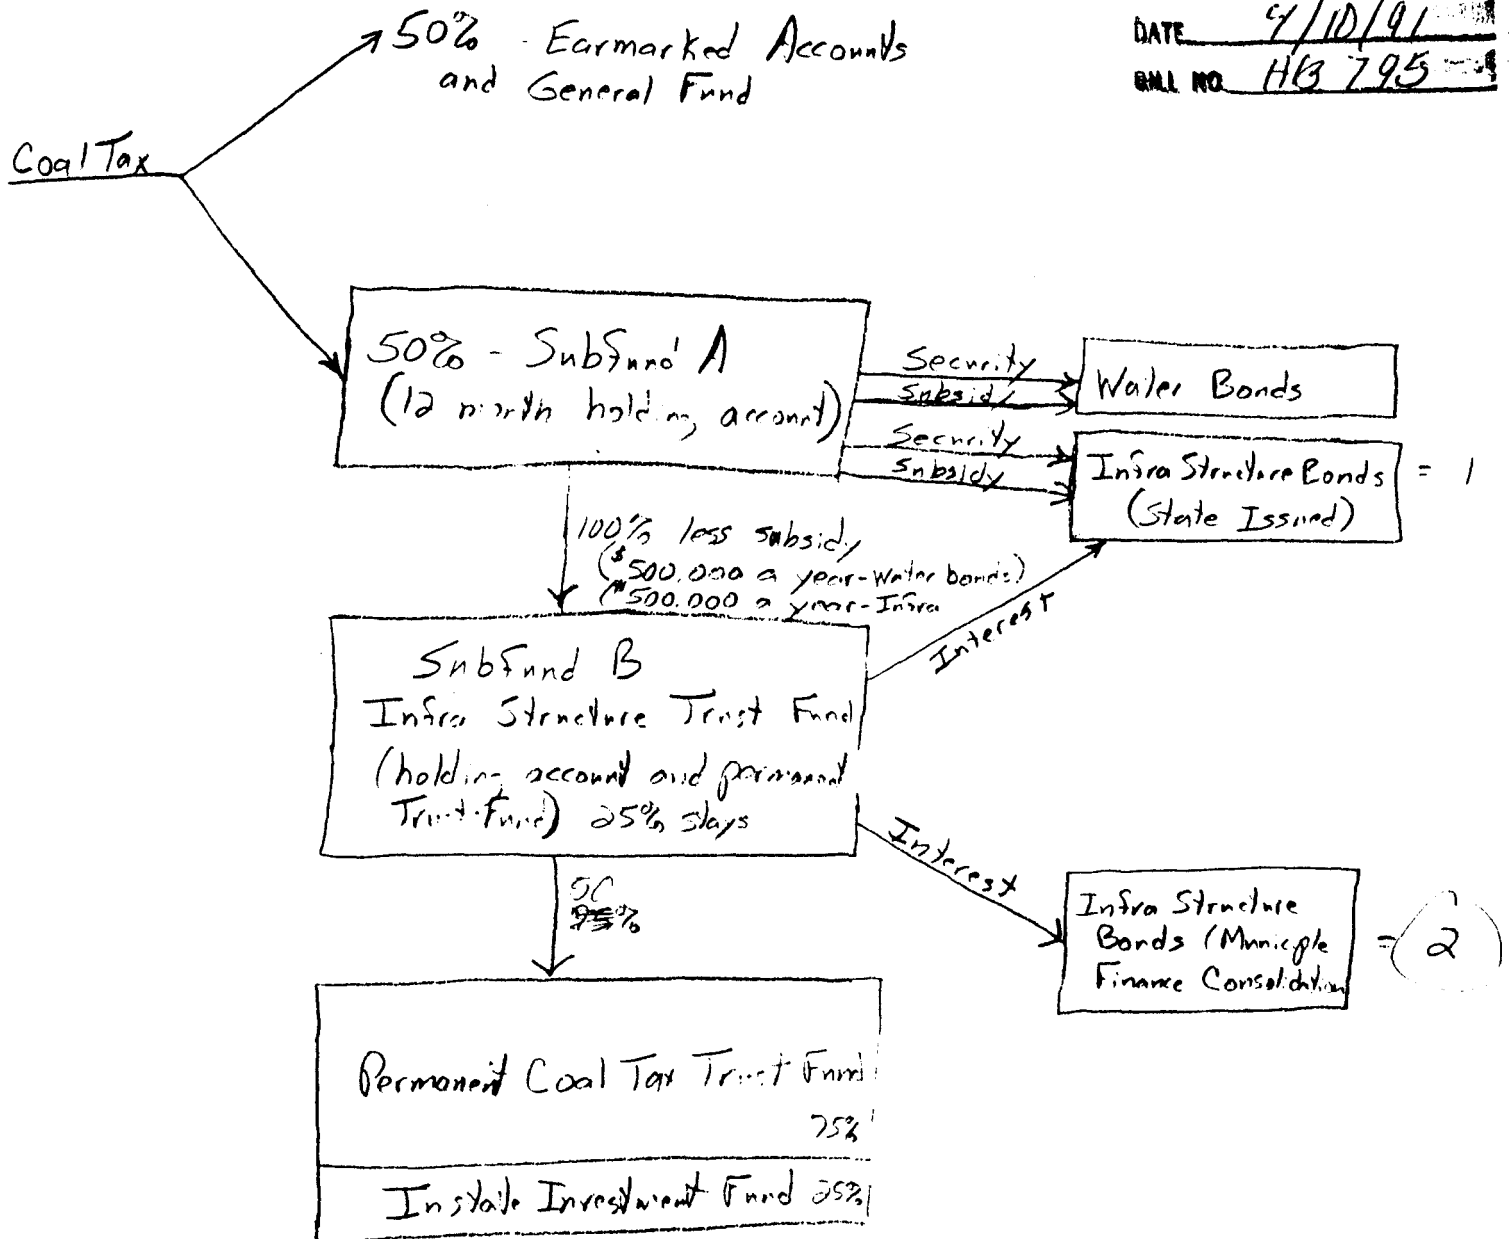 50% - Earmarked Accounts
and General Fund
DATE 4/10/91
BILL NO. HB 795
Coal Tax
50% - Subfund A
(12 month holding account)
Security
Subsidy
Water Bonds
Security
Subsidy
Infra Structure Bonds = 1
(State Issued)
100% less subsidy
($500,000 a year-Water bonds)
($500,000 a year-Infra
Interest
Subfund B
Infra Structure Trust Fund
(holding account and permanent
Trust Fund) 25% stays
Interest
50
%
Infra Structure
Bonds (Municple = 2
Finance Consolidation
Permanent Coal Tax Trust Fund
75%
Instate Investment Fund 25%